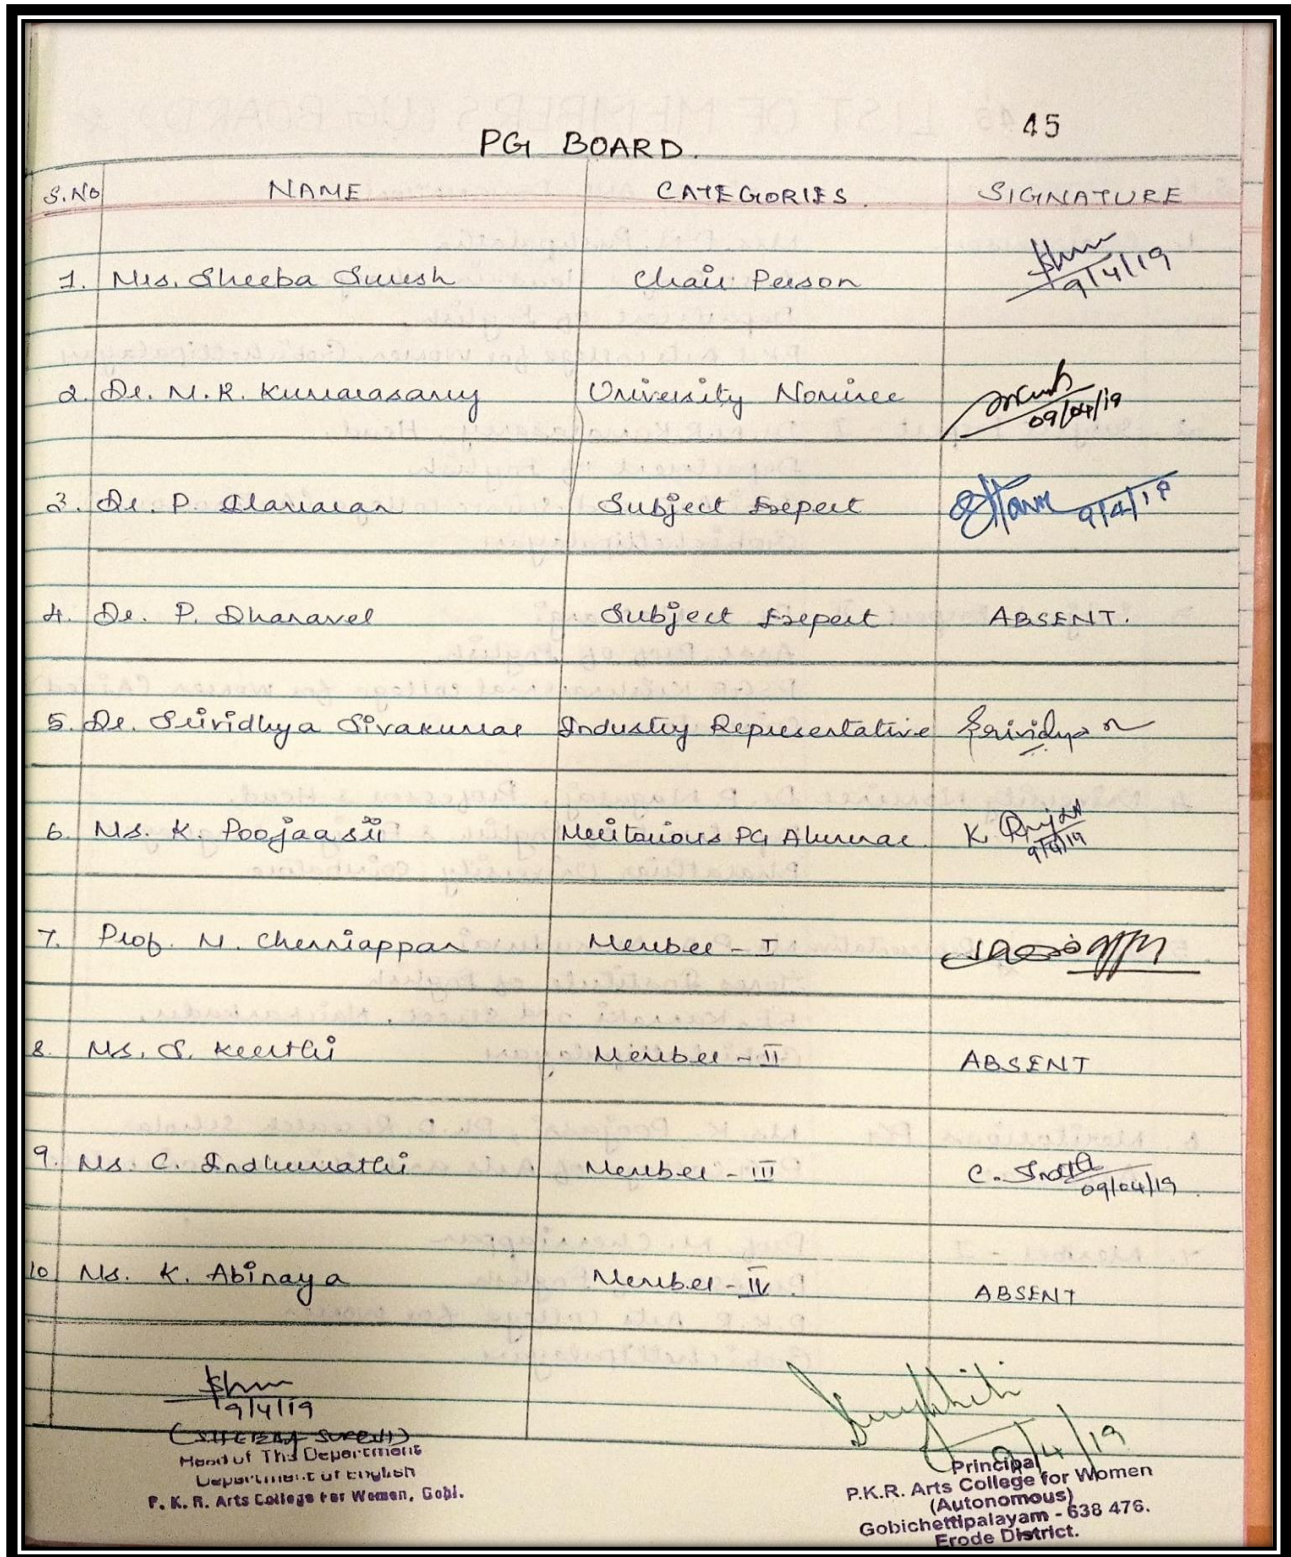 45
PG BOARD.
S.No NAME CATEGORIES. SIGNATURE
9/4/19
1. Mrs. Sheeba Suresh Chair Person
2. Dr. M. R. Kumarasamy University Nominee
09/04/19
3. Dr. P. Subject Expert 9/4/19
4. Dr. P. Dhanavel Subject Expert ABSENT.
5. Dr. Srividhya Sivakumar Industry Representative Srividya
6. Ms. K. Poojaasri Meritorious PG Alumnae. K.
9/4/19
7. Prof. M. Chenniappan Member - I
8. Ms. S. Keerthi Member - II ABSENT
9. Ms. C. Indhumathi Member - III C.
09/04/19
10 Ms. K. Abinaya Member - IV ABSENT
9/4/19
(SHEEBA SURESH)
Head of The Department
Department of English
P. K. R. Arts College For Women, Gobi.
9/4/19
Principal
P.K.R. Arts College for Women
(Autonomous)
Gobichettipalayam - 638 476.
Erode District.